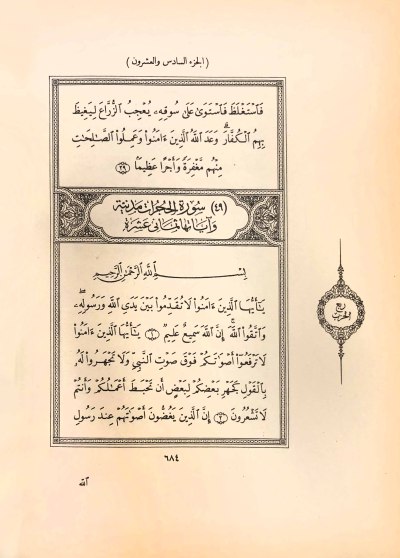 (الجزء السادس والعشرون)
فَٱسْتَغْلَظَ فَٱسْتَوَىٰ عَلَىٰ سُوقِهِۦ يُعْجِبُ ٱلزُّرَّاعَ لِيَغِيظَ
بِهِمُ ٱلْكُفَّارَۗ وَعَدَ ٱللَّهُ ٱلَّذِينَ ءَامَنُوا۟ وَعَمِلُوا۟ ٱلصَّـٰلِحَـٰتِ
مِنْهُم مَّغْفِرَةً وَأَجْرًا عَظِيمًۢا ﴿٢٩﴾
(٤٩) سورة الحجرات مدنية
وآياتها ثماني عشرة
بِسْمِ ٱللَّهِ ٱلرَّحْمَـٰنِ ٱلرَّحِيمِ
يَـٰٓأَيُّهَا ٱلَّذِينَ ءَامَنُوا۟ لَا تُقَدِّمُوا۟ بَيْنَ يَدَىِ ٱللَّهِ وَرَسُولِهِۦۖ
وَٱتَّقُوا۟ ٱللَّهَۚ إِنَّ ٱللَّهَ سَمِيعٌ عَلِيمٌ ﴿١﴾ يَـٰٓأَيُّهَا ٱلَّذِينَ ءَامَنُوا۟
لَا تَرْفَعُوٓا۟ أَصْوَٰتَكُمْ فَوْقَ صَوْتِ ٱلنَّبِىِّ وَلَا تَجْهَرُوا۟ لَهُۥ
بِٱلْقَوْلِ كَجَهْرِ بَعْضِكُمْ لِبَعْضٍ أَن تَحْبَطَ أَعْمَـٰلُكُمْ وَأَنتُمْ
لَا تَشْعُرُونَ ﴿٢﴾ إِنَّ ٱلَّذِينَ يَغُضُّونَ أَصْوَٰتَهُمْ عِندَ رَسُولِ
ربع
الحزب
٦٨٤
الله